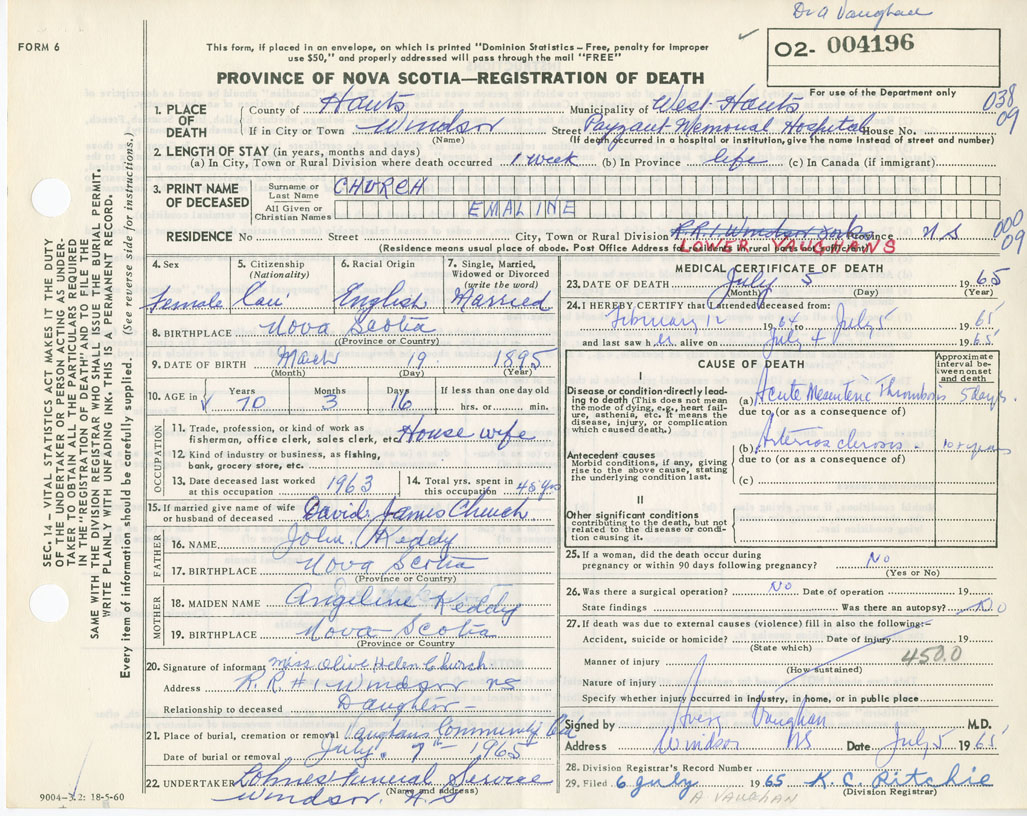 Dr A Vaughan
FORM 6
This form, if placed in an envelope, on which is printed "Dominion Statistics—Free, penalty for improper
use $50," and properly addressed will pass through the mail "FREE"
O2- 004196
PROVINCE OF NOVA SCOTIA—REGISTRATION OF DEATH
For use of the Department only
038
09
1. PLACE OF DEATH
County of Hants Municipality of West Hants
If in City or Town Windsor Street Payzant Memorial Hospital House No.
(Name) (If death occurred in a hospital or institution, give the name instead of street and number)
2. LENGTH OF STAY (in years, months and days)
(a) In City, Town or Rural Division where death occurred 1 week (b) In Province life (c) In Canada (if immigrant)
3. PRINT NAME OF DECEASED
Surname or Last Name CHURCH
All Given or Christian Names EMALINE
RESIDENCE No. Street City, Town or Rural Division R.R.1 Windsor Province N S
000
09
(Residence means usual place of abode. Post Office Address for residents in rural parts not sufficient)
LOWER VAUGHANS
4. Sex Female
5. Citizenship (Nationality) Can
6. Racial Origin English
7. Single, Married, Widowed or Divorced (write the word) Married
8. BIRTHPLACE Nova Scotia
(Province or Country)
9. DATE OF BIRTH March 19 1895
(Month) (Day) (Year)
10. AGE in Years 70 Months 3 Days 16 If less than one day old hrs. or min.
OCCUPATION
11. Trade, profession, or kind of work as
fisherman, office clerk, sales clerk, etc. House wife
12. Kind of industry or business, as fishing,
bank, grocery store, etc.
13. Date deceased last worked at this occupation 1963
14. Total yrs. spent in this occupation 45 yrs
15. If married give name of wife or husband of deceased David James Church
FATHER
16. NAME John Keddy
17. BIRTHPLACE Nova Scotia
(Province or Country)
MOTHER
18. MAIDEN NAME Angeline Keddy
19. BIRTHPLACE Nova Scotia
(Province or Country)
20. Signature of informant Miss Olive Helen Church
Address R.R #1 Windsor NS
Relationship to deceased Daughter
21. Place of burial, cremation or removal Vaughans Community
Date of burial or removal July 7th 1965
22. UNDERTAKER Lohnes Funeral Service
(Name and address)
Windsor, N.S
MEDICAL CERTIFICATE OF DEATH
23. DATE OF DEATH July 5 1965
(Month) (Day) (Year)
24. I HEREBY CERTIFY that I attended deceased from:
February 12 1964 to July 5 1965
and last saw her alive on July 4 1965
CAUSE OF DEATH
Approximate interval between onset and death
I
Disease or condition directly leading to death (This does not mean the mode of dying, e.g., heart failure, asthenia, etc. It means the disease, injury, or complication which caused death.)
(a) Acute Mesenteric Thrombosis 5 days
due to (or as a consequence of)
Antecedent causes
Morbid conditions, if any, giving rise to the above cause, stating the underlying condition last.
(b) Arteriosclerosis 10+ years
due to (or as a consequence of)
(c)
II
Other significant conditions
contributing to the death, but not related to the disease or condition causing it.
25. If a woman, did the death occur during
pregnancy or within 90 days following pregnancy? No
(Yes or No)
26. Was there a surgical operation? No Date of operation 19
State findings Was there an autopsy? No
27. If death was due to external causes (violence) fill in also the following:—
Accident, suicide or homicide? Date of injury 19
(State which)
450.0
Manner of injury
(How sustained)
Nature of injury
Specify whether injury occurred in industry, in home, or in public place
Signed by Avery Vaughan M.D.
Address Windsor NS Date July 5 1965
28. Division Registrar's Record Number
29. Filed 6 July 1965 K.C. Ritchie
(Division Registrar)
A VAUGHAN
9004-3.2: 18-5-60
SEC. 14 – VITAL STATISTICS ACT MAKES IT THE DUTY
OF THE UNDERTAKER OR PERSON ACTING AS UNDER-
TAKER TO OBTAIN ALL THE PARTICULARS REQUIRED
IN THE "REGISTRATION OF DEATH" AND TO FILE THE
SAME WITH THE DIVISION REGISTRAR WHO SHALL ISSUE THE BURIAL PERMIT.
WRITE PLAINLY WITH UNFADING INK. THIS IS A PERMANENT RECORD.
Every item of information should be carefully supplied. (See reverse side for instructions.)